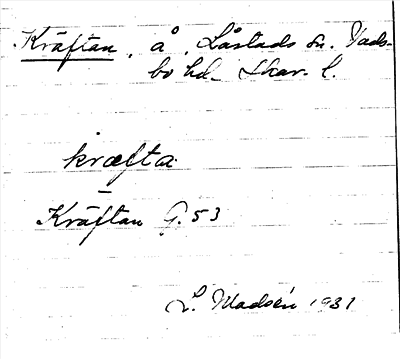 Kräftan, å, Låstads sn. Vads-
bo hd. Skar. l.
kræfta
Kräftan G. 53
L. Madsén 1931